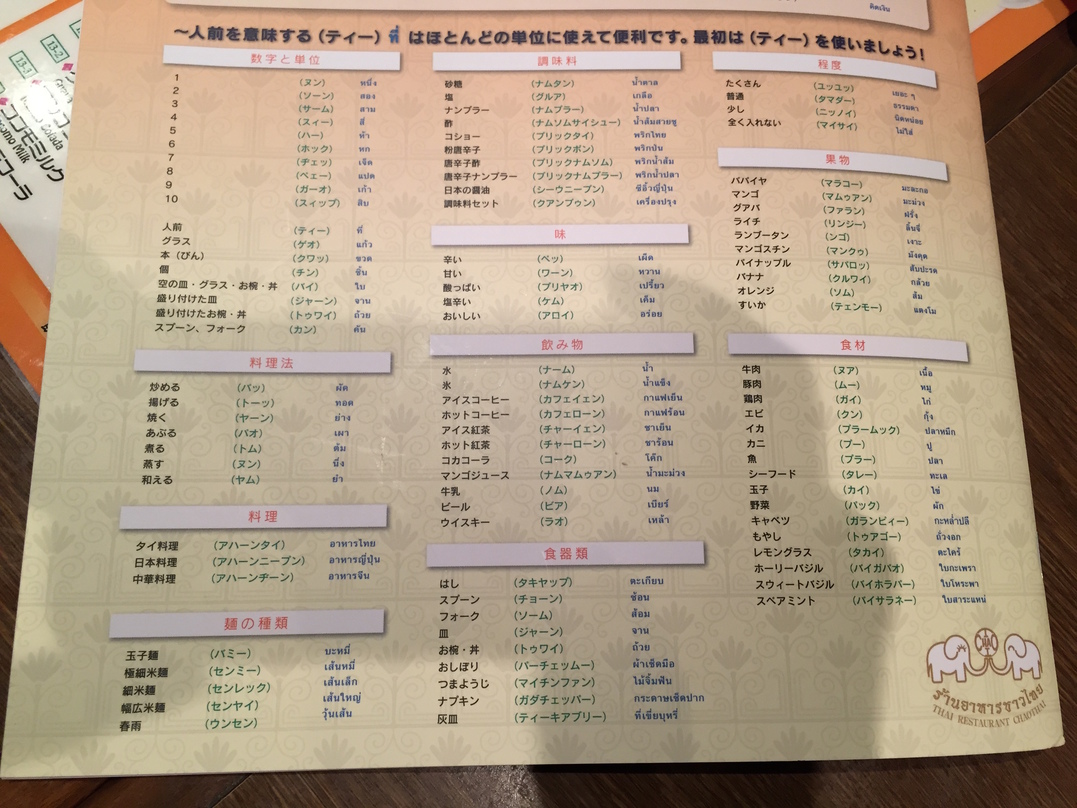 คิดเงิน
～人前を意味する（ティー）ที่ はほとんどの単位に使えて便利です。最初は（ティー）を使いましょう！
数字と単位
1 （ヌン） หนึ่ง
2 （ソーン） สอง
3 （サーム） สาม
4 （スィー） สี่
5 （ハー） ห้า
6 （ホック） หก
7 （ヂェッ） เจ็ด
8 （ペェー） แปด
9 （ガーオ） เก้า
10 （スィップ） สิบ
人前 （ティー） ที่
グラス （ゲオ） แก้ว
本（びん） （クワッ） ขวด
個 （チン） ชิ้น
空の皿・グラス・お椀・丼 （バイ） ใบ
盛り付けた皿 （ジャーン） จาน
盛り付けたお椀・丼 （トゥワイ） ถ้วย
スプーン、フォーク （カン） คัน
料理法
炒める （パッ） ผัด
揚げる （トーッ） ทอด
焼く （ヤーン） ย่าง
あぶる （パオ） เผา
煮る （トム） ต้ม
蒸す （ヌン） นึ่ง
和える （ヤム） ยำ
料理
タイ料理 （アハーンタイ） อาหารไทย
日本料理 （アハーンニープン） อาหารญี่ปุ่น
中華料理 （アハーンヂーン） อาหารจีน
麺の種類
玉子麺 （バミー） บะหมี่
極細米麺 （センミー） เส้นหมี่
細米麺 （センレック） เส้นเล็ก
幅広米麺 （センヤイ） เส้นใหญ่
春雨 （ウンセン） วุ้นเส้น
調味料
砂糖 （ナムタン） น้ำตาล
塩 （グルア） เกลือ
ナンプラー （ナムプラー） น้ำปลา
酢 （ナムソムサイシュー） น้ำส้มสายชู
コショー （プリックタイ） พริกไทย
粉唐辛子 （プリックポン） พริกป่น
唐辛子酢 （プリックナムソム） พริกน้ำส้ม
唐辛子ナンプラー （プリックナムプラー） พริกน้ำปลา
日本の醤油 （シーウニープン） ซีอิ๊วญี่ปุ่น
調味料セット （クアンプゥン） เครื่องปรุง
味
辛い （ペッ） เผ็ด
甘い （ワーン） หวาน
酸っぱい （プリヤオ） เปรี้ยว
塩辛い （ケム） เค็ม
おいしい （アロイ） อร่อย
飲み物
水 （ナーム） น้ำ
氷 （ナムケン） น้ำแข็ง
アイスコーヒー （カフェイェン） กาแฟเย็น
ホットコーヒー （カフェローン） กาแฟร้อน
アイス紅茶 （チャーイェン） ชาเย็น
ホット紅茶 （チャーローン） ชาร้อน
コカコーラ （コーク） โค๊ก
マンゴジュース （ナムマムゥアン） น้ำมะม่วง
牛乳 （ノム） นม
ビール （ビア） เบียร์
ウイスキー （ラオ） เหล้า
食器類
はし （タキヤップ） ตะเกียบ
スプーン （チョーン） ช้อน
フォーク （ソーム） ส้อม
皿 （ジャーン） จาน
お椀・丼 （トゥワイ） ถ้วย
おしぼり （パーチェッムー） ผ้าเช็ดมือ
つまようじ （マイチンファン） ไม้จิ้มฟัน
ナプキン （ガダチェッパー） กระดาษเช็ดปาก
灰皿 （ティーキアブリー） ที่เขี่ยบุหรี่
程度
たくさん （ユッユッ） เยอะ ๆ
普通 （タマダー） ธรรมดา
少し （ニッノイ） นิดหน่อย
全く入れない （マイサイ） ไม่ใส่
果物
パパイヤ （マラコー） มะละกอ
マンゴ （マムゥアン） มะม่วง
グアバ （ファラン） ฝรั่ง
ライチ （リンジー） ลิ้นจี่
ランブータン （ンゴ） เงาะ
マンゴスチン （マンクゥ） มังคุด
パイナップル （サパロッ） สับปะรด
バナナ （クルワイ） กล้วย
オレンジ （ソム） ส้ม
すいか （テェンモー） แตงโม
食材
牛肉 （ヌア） เนื้อ
豚肉 （ムー） หมู
鶏肉 （ガイ） ไก่
エビ （クン） กุ้ง
イカ （プラームック） ปลาหมึก
カニ （プー） ปู
魚 （プラー） ปลา
シーフード （タレー） ทะเล
玉子 （カイ） ไข่
野菜 （パック） ผัก
キャベツ （ガランピィー） กะหล่ำปลี
もやし （トゥアゴー） ถั่วงอก
レモングラス （タカイ） ตะไคร้
ホーリーバジル （バイガパオ） ใบกะเพรา
スウィートバジル （バイホラパー） ใบโหระพา
スペアミント （バイサラネー） ใบสาระแหน่
ร้านอาหารชาวไทย
THAI RESTAURANT CHAOTHAI
13-2
13-3